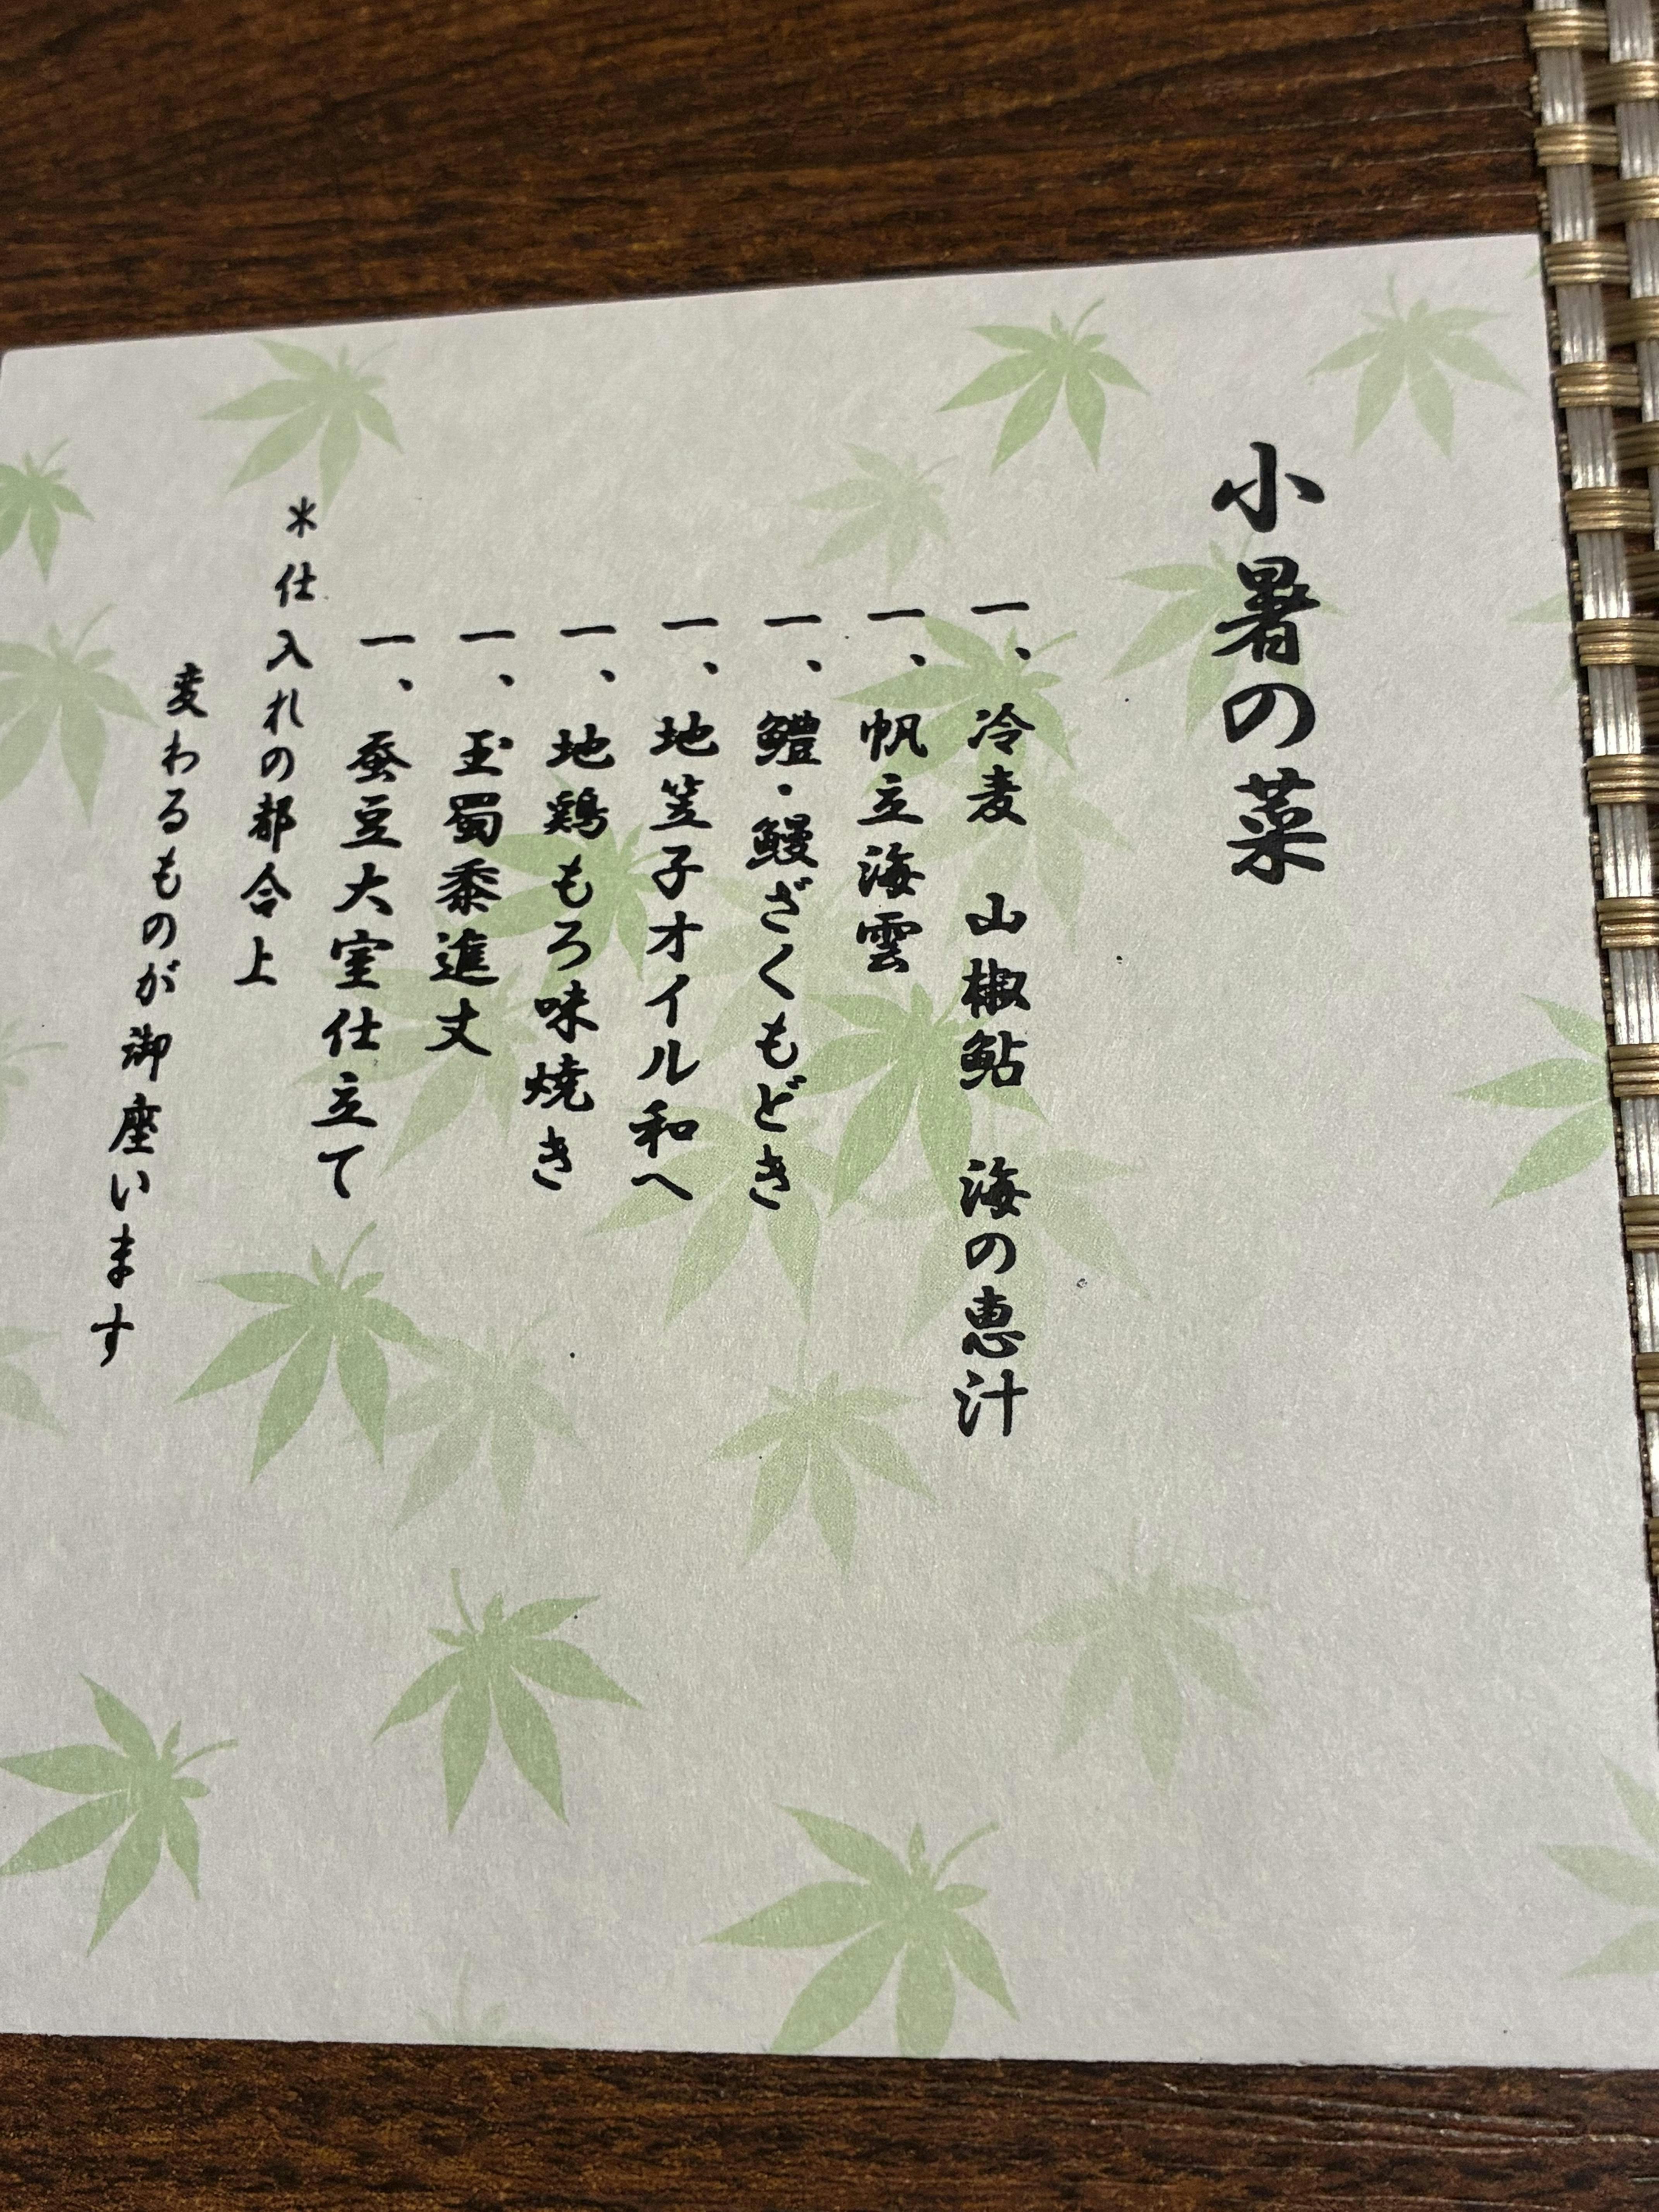 小暑の菜
一、冷麦　山椒鮎　海の恵汁
一、帆立海雲
一、鱧・鰻ざくもどき
一、地笠子オイル和へ
一、地鶏もろ味焼き
一、玉蜀黍進丈
一、蚕豆大室仕立て
＊仕入れの都合上
変わるものが御座います